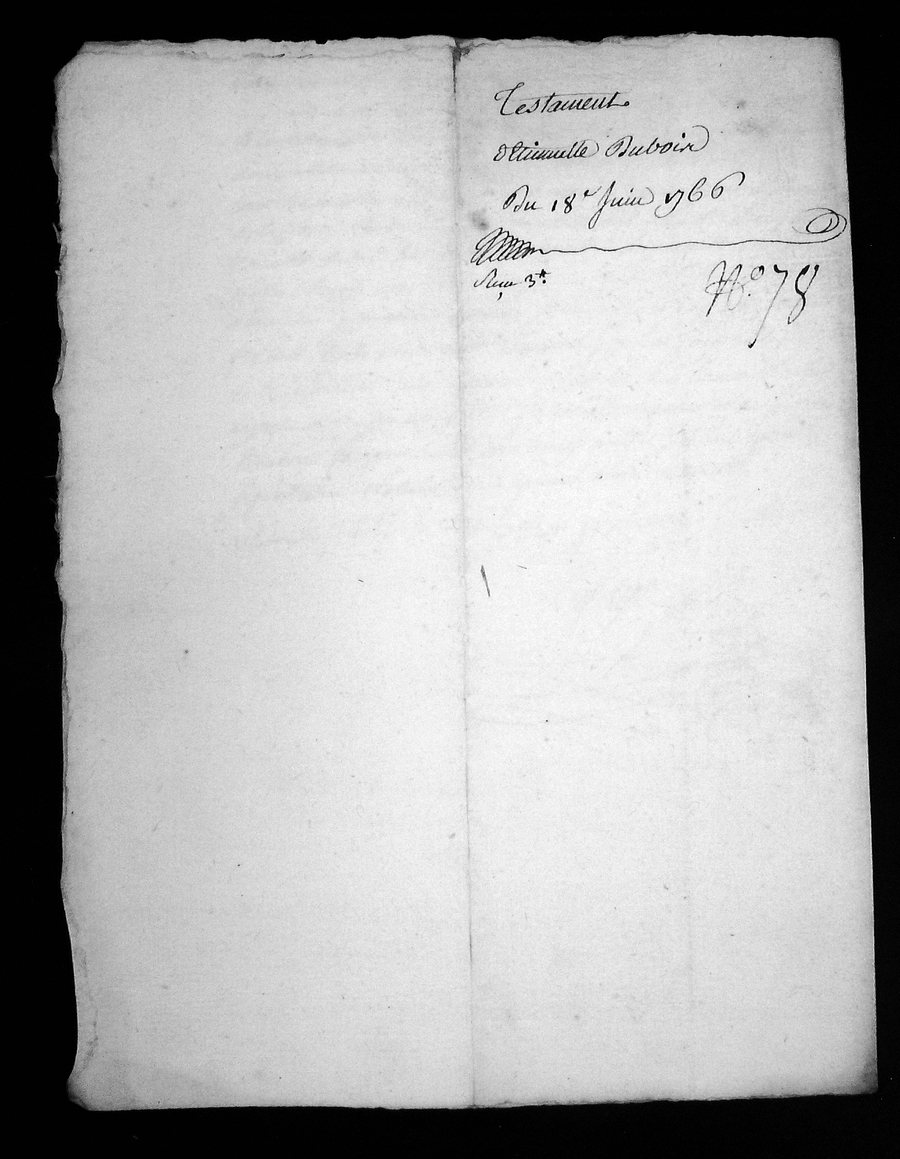 Testament
d'Etiennette Dubois
Du 18e Juin 1766
Reçu 3tt
No. 78